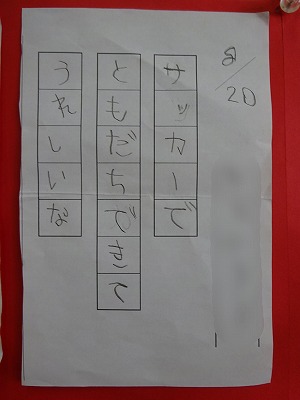 8/20
サッカーで
ともだちできて
うれしいな